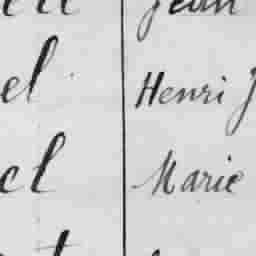 Jean
el Henri J
el Marie